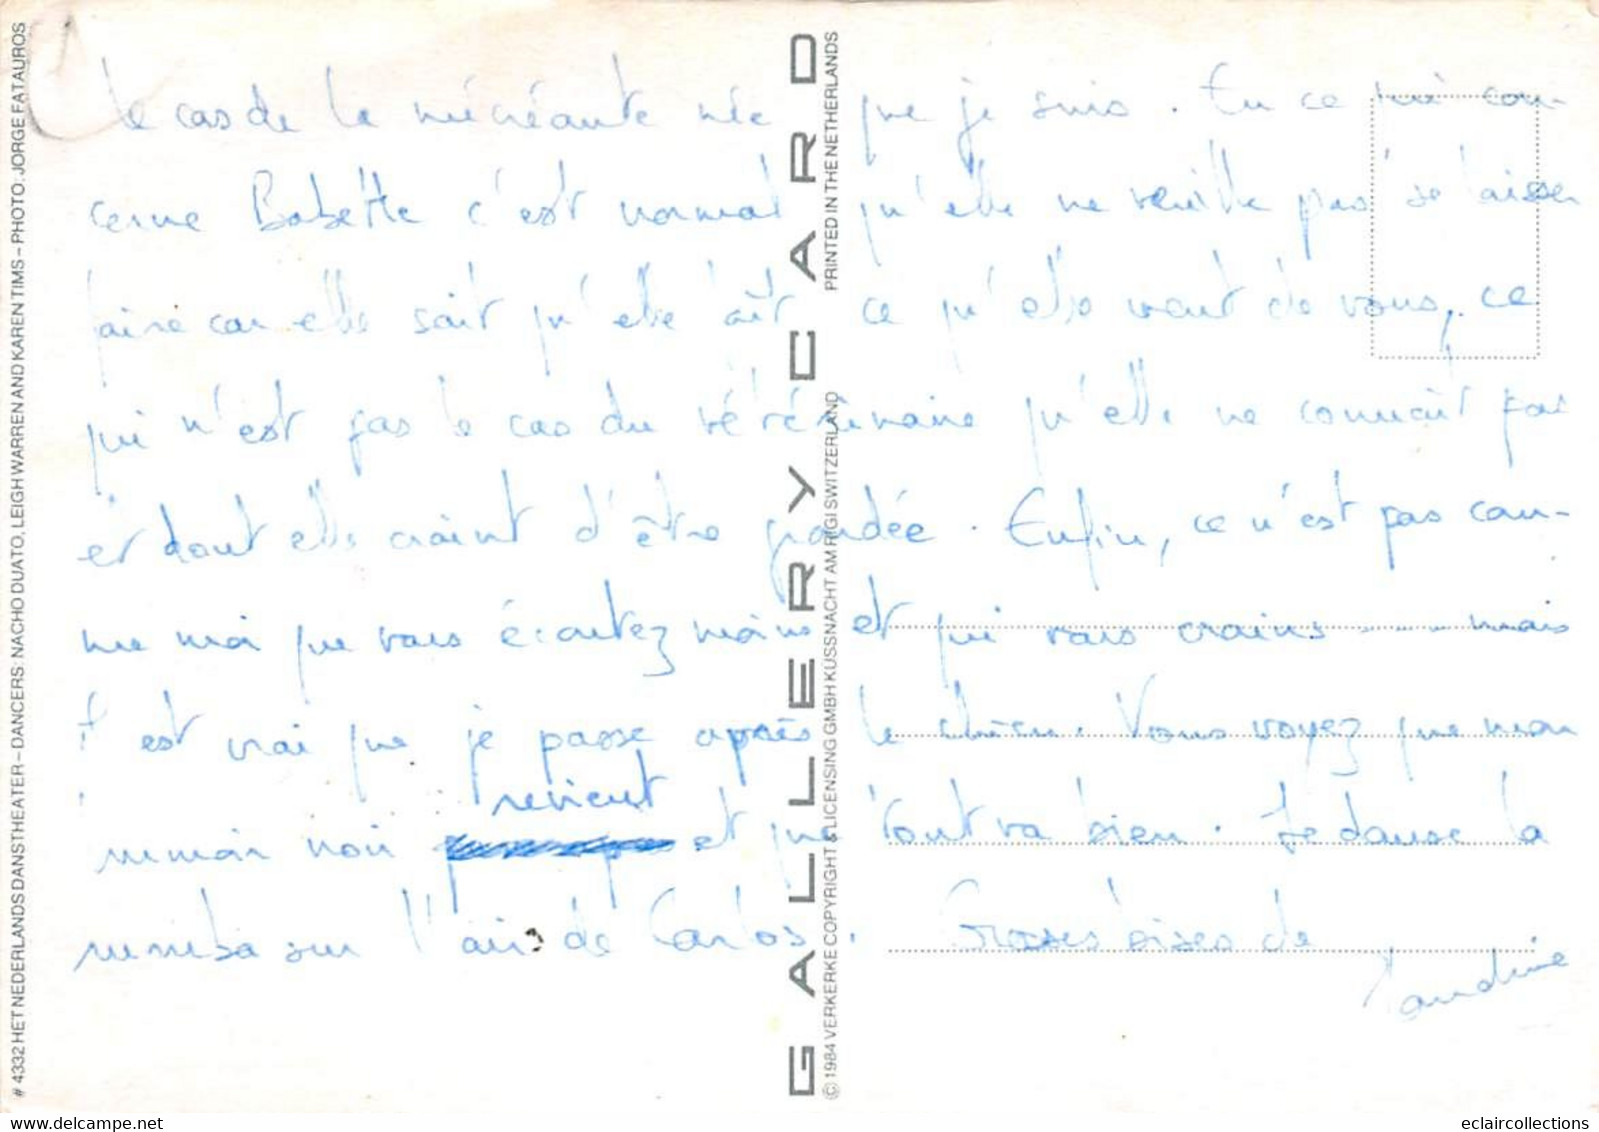 le cas de la mécréante née que je suis. En ce qui con-
cerne Babette c'est normal qu'elle ne veuille pas se laisser
faire car elle sait qu'elle ait ce qu'elle veut de vous, ce
qui n'est pas le cas du vétérinaire qu'elle ne connait pas
et dont elle craint d'être grondée. Enfin, ce n'est pas com-
me moi que vous écoutez moins et qui vous crains ---- mais
c'est vrai que je passe après le chien. Vous voyez que mon
humour noir revient et que tout va bien. Je danse la
rumba sur l'air de Carlos. Grosses bises de
Sandrine
# 4332 HET NEDERLANDS DANSTHEATER – DANCERS: NACHO DUATO, LEIGH WARREN AND KAREN TIMS – PHOTO: JORGE FATAUROS
GALLERY CARD
© 1984 VERKERKE COPYRIGHT & LICENSING GMBH KÜSSNACHT AM RIGI SWITZERLAND
PRINTED IN THE NETHERLANDS
www.delcampe.net
eclaircollections